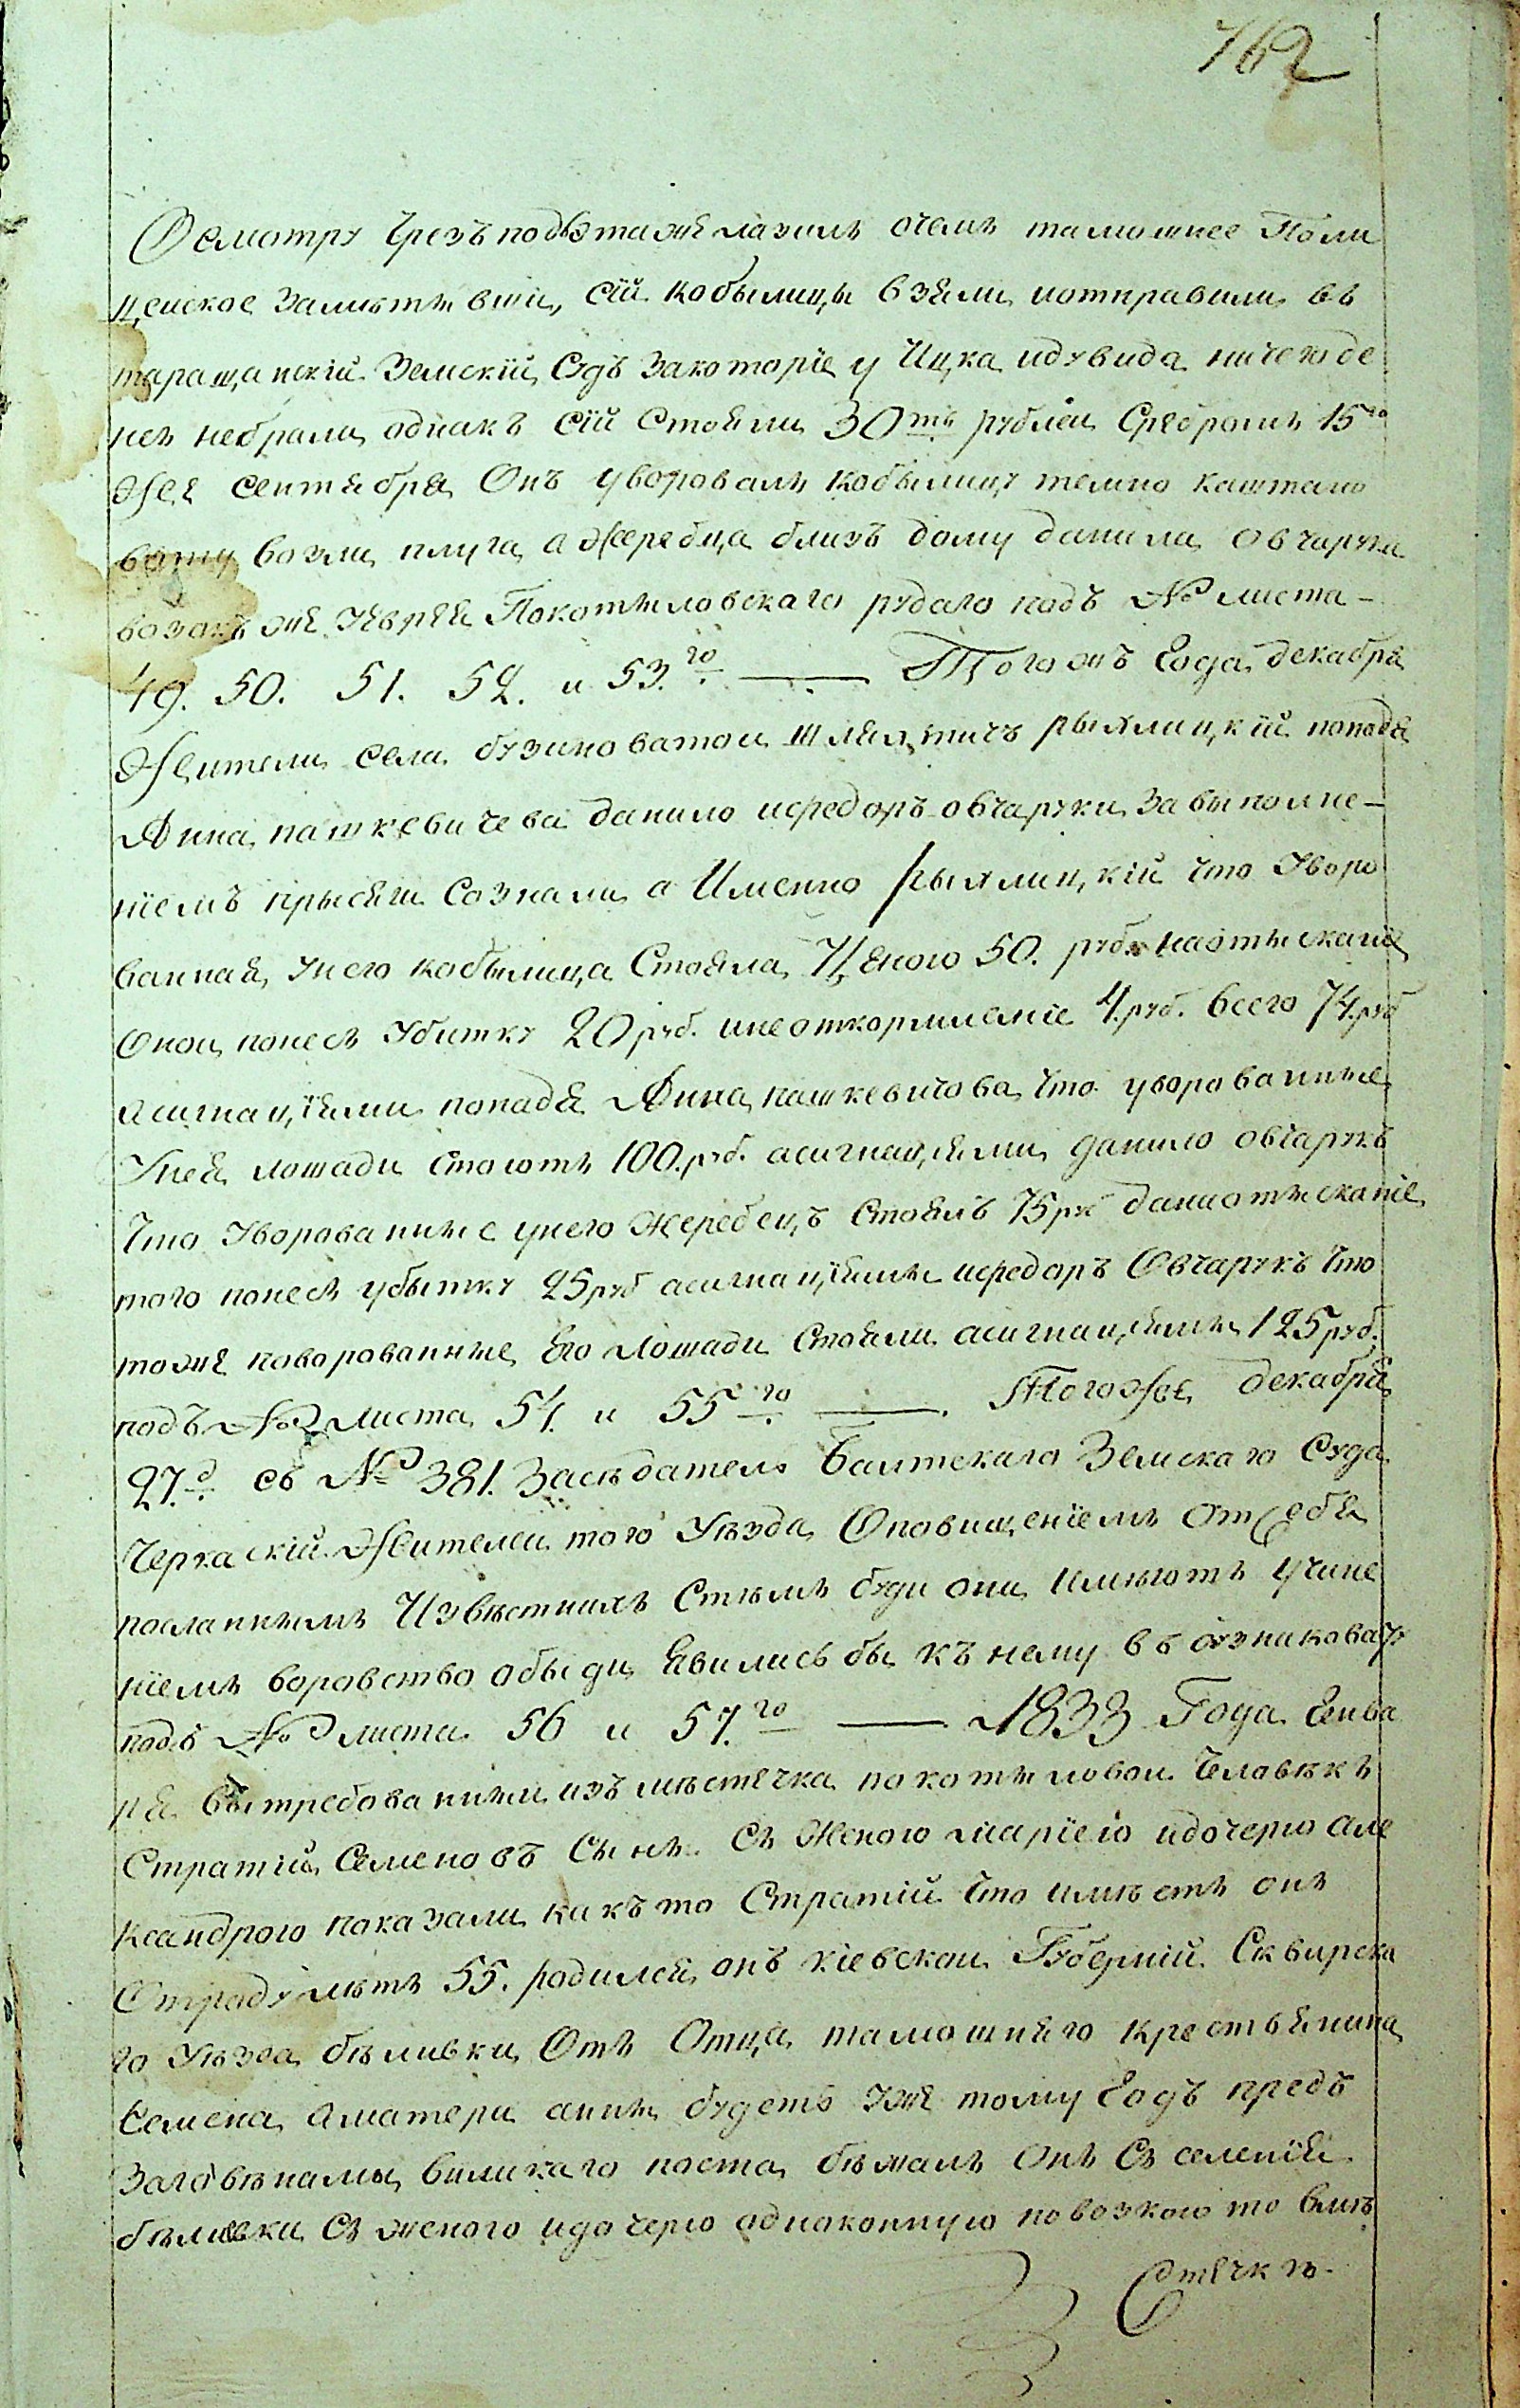 762
Осмотру чрезъ подъэтаже лазилъ очемъ тамошнее Поли
цейское Заметивши, сїи кобылицы взяли иотправили въ
таращанский Земский Судъ Закоторїе у Ицка идувида ничего де
нег небрали однакъ сїи Стояли 30ть рублей Сребромъ 15го
Же сентября Онъ уворовалъ кобылицу темно каштано
ватую возли плуга, а Жеребца близъ дому данила овчарука
возакъ же Кяряя Покотиловскаго рудого подъ № листа —
49. 50. 51. 52. и 53.го —— Того жъ Года декабря
Жители села бузиноватои шляхтичъ рыхлицкїй попадя
Анна пашкевичева данило ифедоръ овчаруки За выполне-
нїемъ прысяги Сознали а Именно рыхлицкїй что Уворо
ванная, унего кобылица Стояла, Ценою 50. руб. наотысканїе
Оной понесъ Убитку 20 руб. инеоткормленїе 4.руб. всего 74.руб
асигнацїями попадя Анна пашкевичова, что уворованные
Унея лошади стоютъ 100.руб. асигнацїями, данило овчарукъ
Что Уворованние унего жеребецъ Стоялъ 75 ру данаотысканїе
того понесъ убытку 25 руб асигнацїями ифедоръ Овчарукъ что
тоже поворованные, Его Лошади Стояли асигнацїями 125 руб.
подъ № листа 54. и 55го —— Того Же декабря
27.д съ № 381. Заседатель Балтскаго Земскаго Суда
Черкаский Жителей того Уезда, Оповищенїемъ От себя
посланнимъ Известнихъ Стемъ буди они имеютъ учине
нїемъ воровство обыди, Явились бы къ нему въ бузниковату
подъ № листа 56 и 57.го —— 1833 Года Янва
ря вытребованним изъ местечка покотиловои Человекъ
Стратий Семеновъ Сынъ. Съ Женою Марїею идочерю але
ксандрою показали, какъ то Стратїй что имеетъ онъ
Отроду летъ 55. родился онъ кїевскои Губернїй Сквирска
го Уезда беливки, Отъ Отца тамошняго крестьянина
Семена, аматери анни, будетъ уже тому Годъ предъ
Заговенамы виликаго поста, бежалъ Онъ Съ селенїя
беливки Съ женого идочерю одноконную повозкою то вме
стечкъ